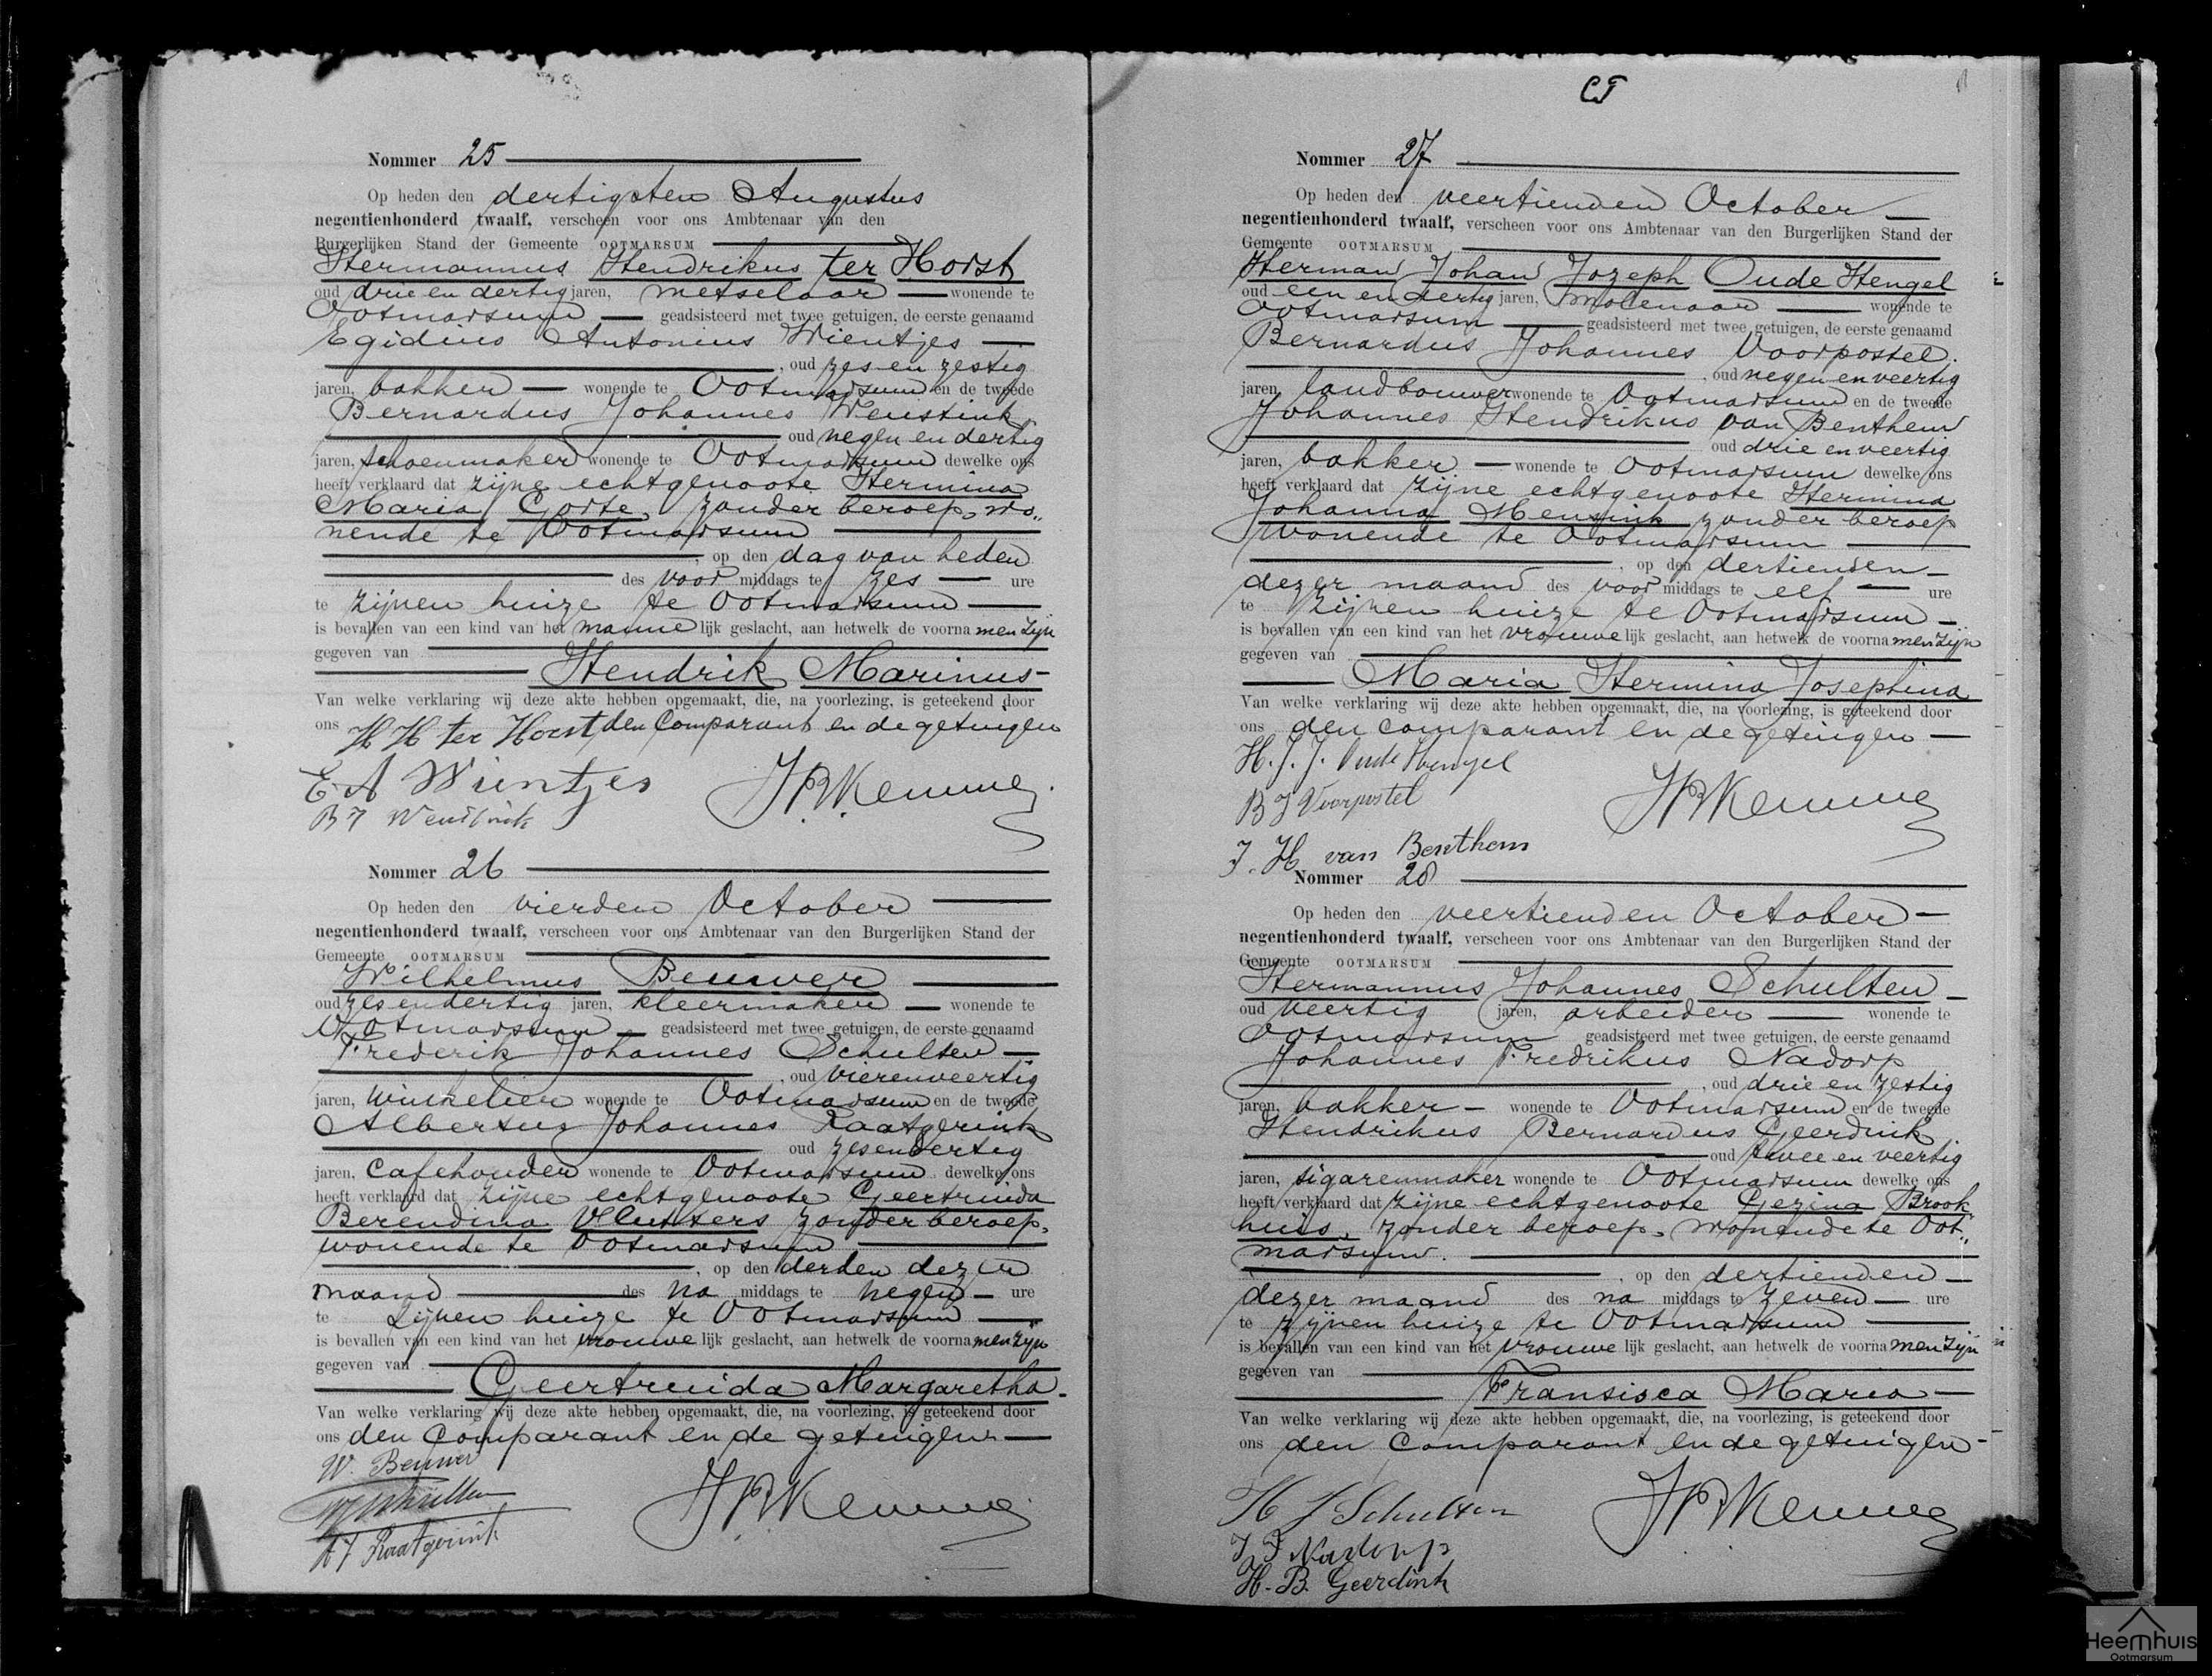 Nommer 25
Op heden den dertigsten Augustus
negentienhonderd twaalf, verscheen voor ons Ambtenaar van den
Burgerlijken Stand der Gemeente OOTMARSUM
Hermannus Hendrikus ter Horst
oud drie en dertig jaren, metselaar wonende te
Ootmarsum geadsisteerd met twee getuigen, de eerste genaamd
Egidius Antonius Wientjes
, oud zes en zestig
jaren, bakker wonende te Ootmarsum en de tweede
Bernardus Johannes Weustink
oud negen en dertig
jaren, schoenmaker wonende te Ootmarsum dewelke ons
heeft verklaard dat zijne echtgenoote Hermina
Maria Corte, zonder beroep, wo„
nende te Ootmarsum
, op den dag van heden
des voor middags te zes ure
te zijnen huize te Ootmarsum
is bevallen van een kind van het manne lijk geslacht, aan hetwelk de voorna men zijn
gegeven van
Hendrik Marinus
Van welke verklaring wij deze akte hebben opgemaakt, die, na voorlezing, is geteekend door
ons den Comparant en de getuigen
H H ter Horst
E A Wientjes
B J Weustink
Nommer 26
Op heden den vierden October
negentienhonderd twaalf, verscheen voor ons Ambtenaar van den Burgerlijken Stand der
Gemeente OOTMARSUM
Wilhelmus Beuwer
oud zes en dertig jaren, kleermaker wonende te
Ootmarsum geadsisteerd met twee getuigen, de eerste genaamd
Frederik Johannes Schulten
, oud vierenveertig
jaren, winkelier wonende te Ootmarsum en de tweede
Albertus Johannes Raatgerink
oud zesendertig
jaren, cafehouder wonende te Ootmarsum dewelke ons
heeft verklaard dat zijne echtgenoote Geertruida
Berendina Vlutters zonder beroep,
wonende te Ootmarsum
, op den derden dezer
maand des na middags te negen ure
te zijnen huize te Ootmarsum
is bevallen van een kind van het vrouwe lijk geslacht, aan hetwelk de voorna men zijn
gegeven van
Geertruida Margaretha
Van welke verklaring wij deze akte hebben opgemaakt, die, na voorlezing, is geteekend door
ons den Comparant en de getuigen
W. Beuwer
Schulten
A J Raatgerink
CT
Nommer 27
Op heden den veertienden October
negentienhonderd twaalf, verscheen voor ons Ambtenaar van den Burgerlijken Stand der
Gemeente OOTMARSUM
Herman Johan Jozeph Oude Hengel
oud een en dertig jaren, molenaar wonende te
Ootmarsum geadsisteerd met twee getuigen, de eerste genaamd
Bernardus Johannes Voorpostel.
, oud negen en veertig
jaren, landbouwer wonende te Ootmarsum en de tweede
Johannes Hendrikus van Benthem
oud drie en veertig
jaren, bakker wonende te Ootmarsum dewelke ons
heeft verklaard dat zijne echtgenoote Hermina
Johanna Mensink zonder beroep
wonende te Ootmarsum
, op den dertienden
dezer maand des voor middags te elf ure
te zijnen huize te Ootmarsum
is bevallen van een kind van het vrouwe lijk geslacht, aan hetwelk de voorna men zijn
gegeven van
Maria Hermina Josephina
Van welke verklaring wij deze akte hebben opgemaakt, die, na voorlezing, is geteekend door
ons den comparant en de getuigen
H. J. J. Oude Hengel
B J Voorpostel
J. H van Benthem
Nommer 28
Op heden den veertienden October
negentienhonderd twaalf, verscheen voor ons Ambtenaar van den Burgerlijken Stand der
Gemeente OOTMARSUM
Hermannus Johannes Schulten
oud veertig jaren, arbeider wonende te
Ootmarsum geadsisteerd met twee getuigen, de eerste genaamd
Johannes Fredrikus Nadorp
, oud drie en zestig
jaren, bakker wonende te Ootmarsum en de tweede
Hendrikus Bernardus Geerdink
oud twee en veertig
jaren, sigarenmaker wonende te Ootmarsum dewelke ons
heeft verklaard dat zijne echtgenoote Gezina Brook
huis, zonder beroep, wonende te Oot„
marsum.
, op den dertienden
dezer maand des na middags te zeven ure
te zijnen huize te Ootmarsum
is bevallen van een kind van het vrouwe lijk geslacht, aan hetwelk de voorna men zijn
gegeven van
Fransisca Maria
Van welke verklaring wij deze akte hebben opgemaakt, die, na voorlezing, is geteekend door
ons den Comparant en de getuigen
H J Schulten
J F Nadorp
H. B. Geerdink
Heemhuis
Ootmarsum